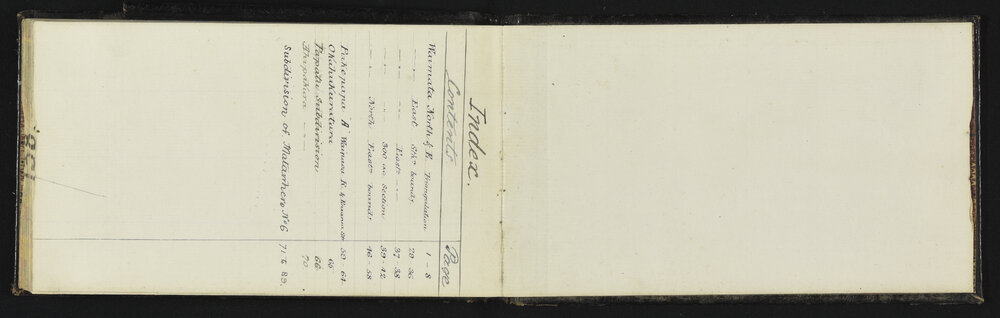 Index.
Contents Page
Waimata North & E. Triangulation 1 - 8
—"— East Sthn bounds 29 36
—"— —"— East —"— 37 38
—"— 300 ac. Section 39 - 42
—"— North East bounds 46 - 58
Pukepapa "A" 59 - 64
Okahukuratura 65
Papatu Subdivision 66
Ahapakura —"— 70
Subdivision of Matawhero No 6 71 to 83.